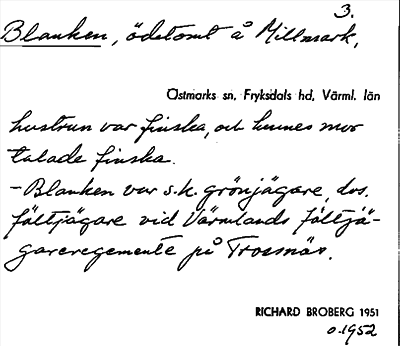 3.
Blanken, ödetomt å Millmark,
Östmarks sn, Fryksdals hd, Värml. län
hustrun var finska, och hennes mor
talade finska.
- Blanken var s.k. grönjägare, dvs.
fältjägare vid Värmlands fältjä-
gareregemente på Trossnäs.
RICHARD BROBERG 1951
o. 1952